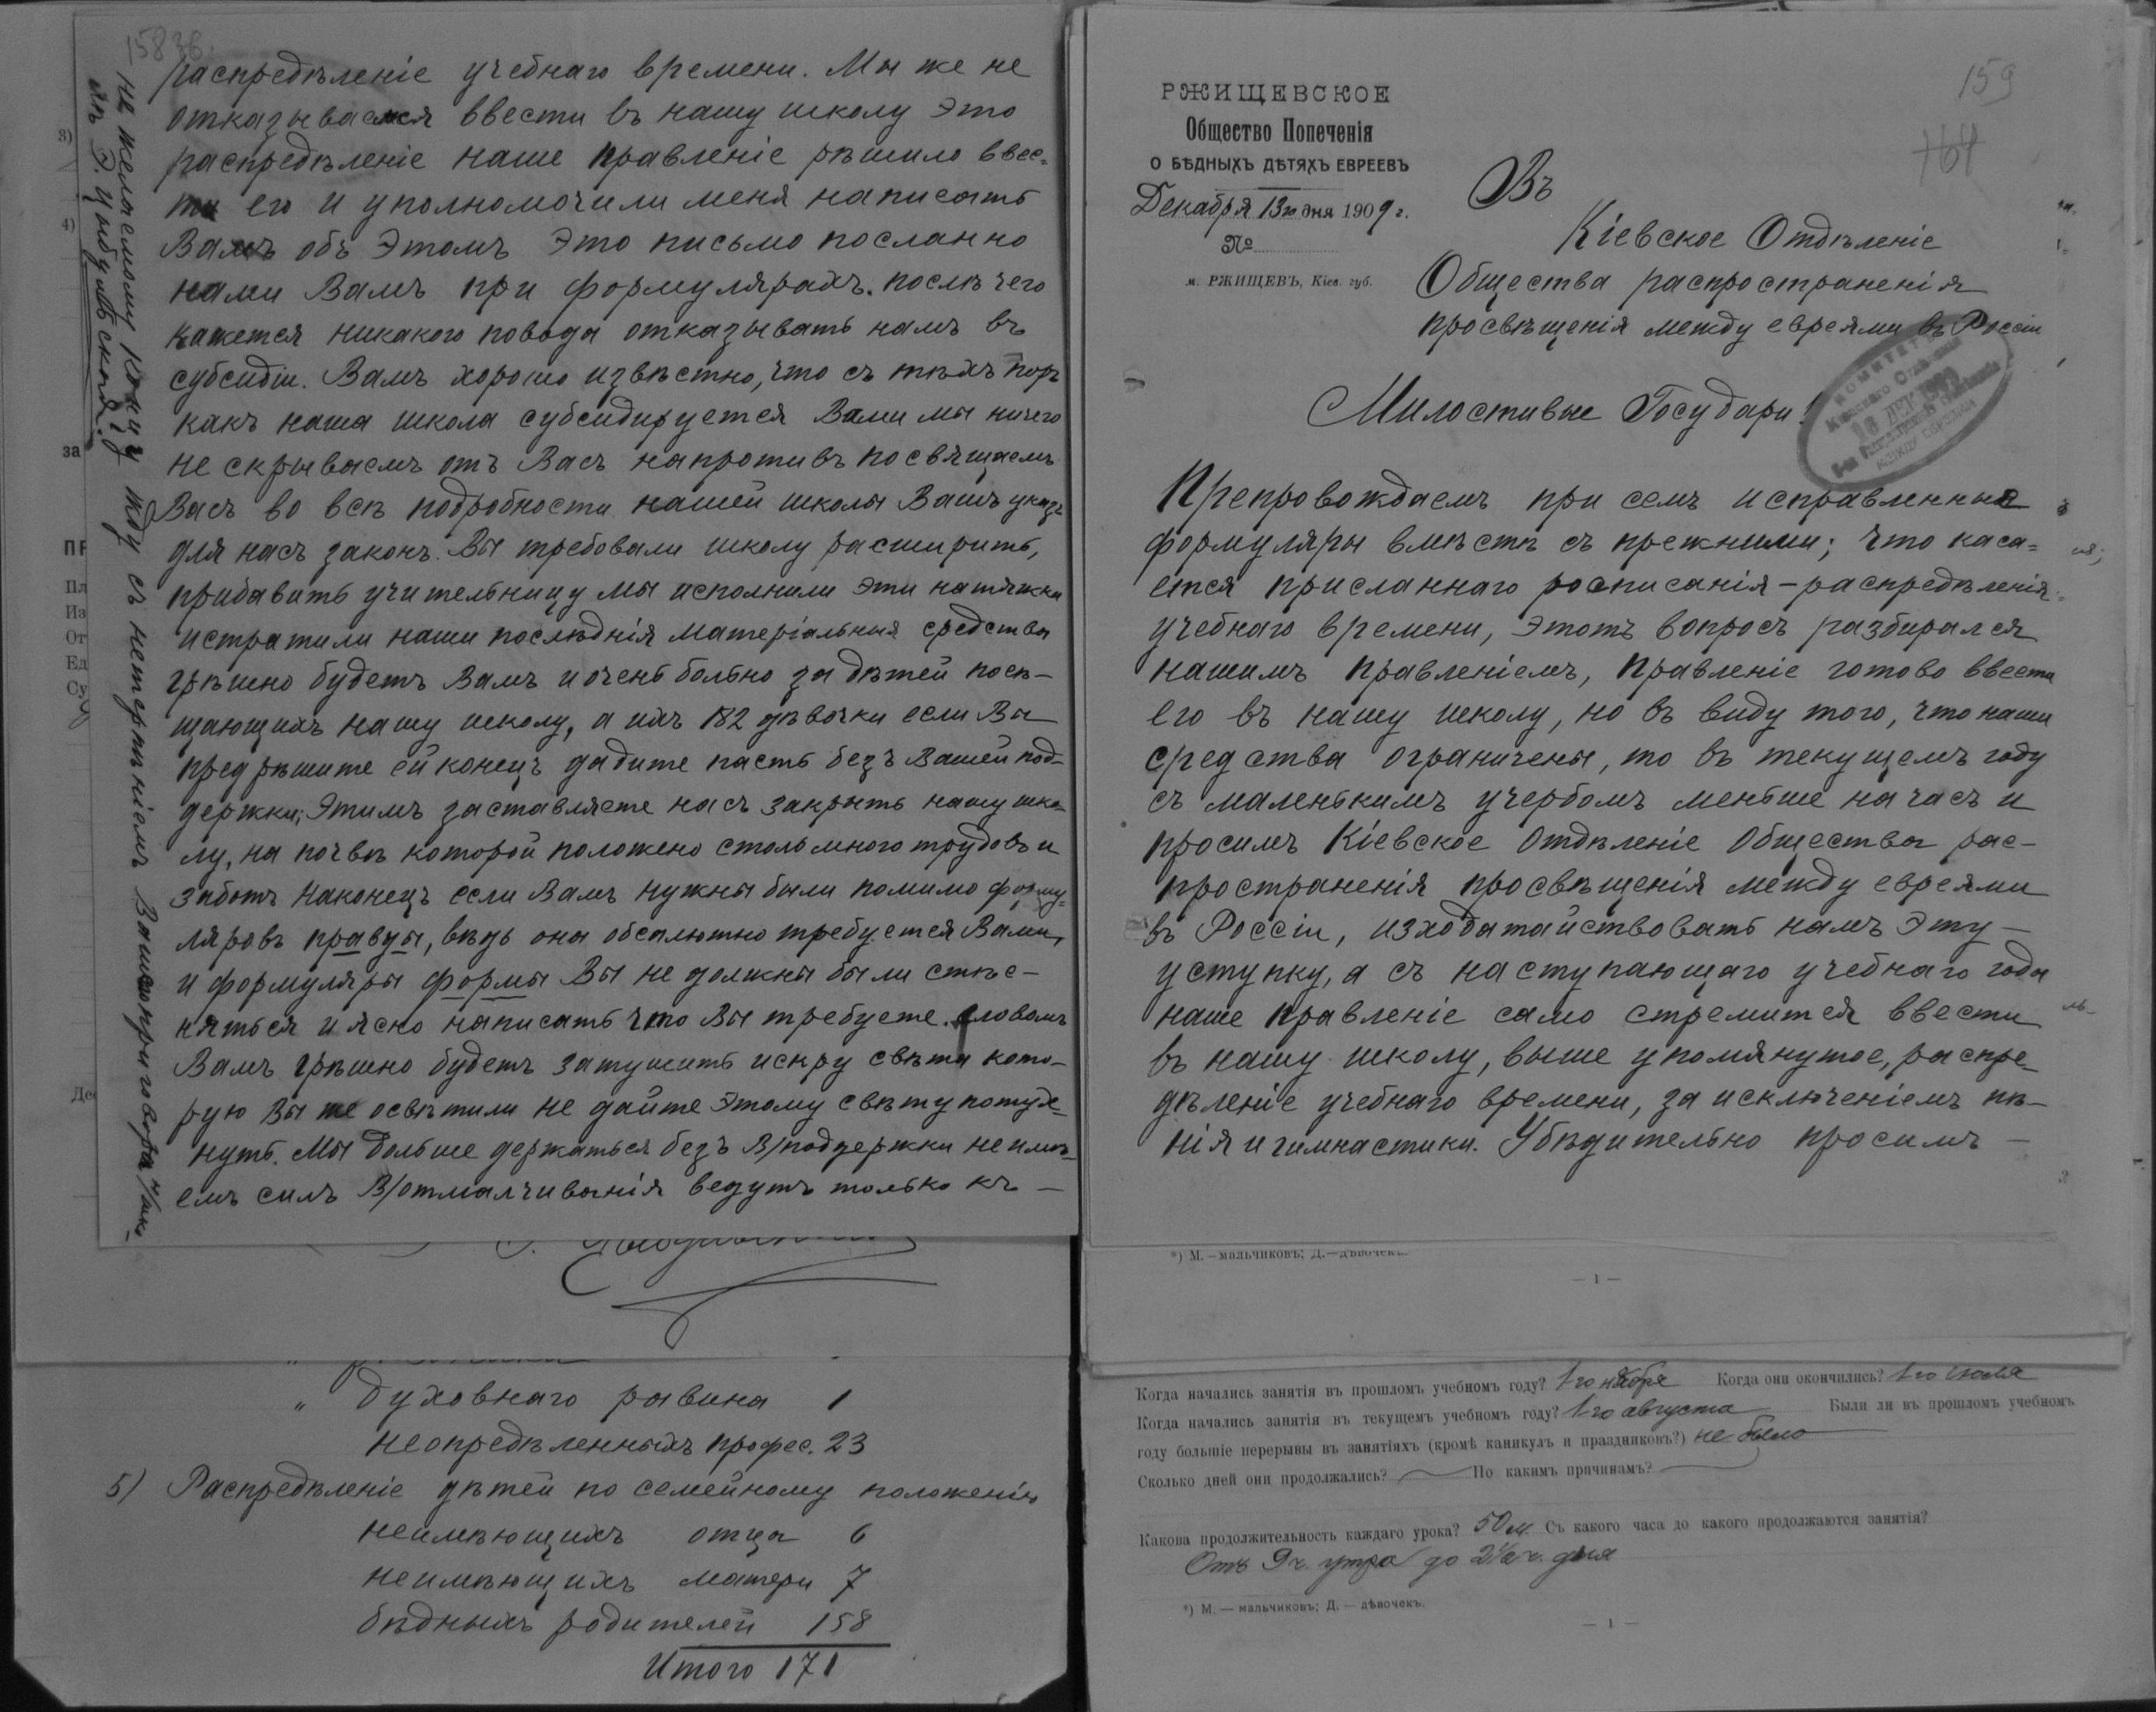 158 зв.
распредѣленіе учебнаго времени. Мы же не
отказываемся ввести въ нашу школу это
распредѣленіе наше правленіе рѣшило ввес-
ти его и уполномочили меня написать
Вамъ объ этомъ это письмо посланно
нами Вамъ при формулярахъ. послѣ чего
кажется никакого повода отказывать намъ въ
субсидіи. Вамъ хорошо извѣстно, что съ тѣхъ поръ
какъ наша школа субсидируется Вами мы ничего
не скрываемъ отъ Васъ напротивъ посвящаемъ
Васъ во всѣ подробности нашей школы Вашъ указъ
для насъ законъ. Вы требовали школу расширить,
прибавить учительницу мы исполнили эти натяжки
истратили наши послѣднія матеріальныя средства
грѣшно будетъ Вамъ и очень больно за дѣтей посѣ-
щающихъ нашу школу, а ихъ 182 дѣвочки если Вы
предрѣшите ей конецъ дадите пасть безъ Вашей под-
держки; Этимъ заставляете насъ закрыть нашу шко-
лу, на почвѣ которой положено столь много трудовъ и
заботъ наконецъ если Вамъ нужны были помимо форму-
ляровъ правды, вѣдь она обсалютно требуется Вами,
и формуляры формы Вы не должны были стѣс-
няться и ясно написать что Вы требуете. словомъ
Вамъ грѣшно будетъ затушить искру свѣта кото-
рую Вы же освѣтили не дайте этому свѣту потух-
нуть. Мы больше держаться безъ В/поддержки не имѣ-
емъ силъ В/отмалчиванія ведутъ только къ —
не желаемому концу жду съ нетерпѣніемъ Вашего приговора
3)
4)
за
Пл
Из
От
Ед
Су
" духовнаго равина 1
неопредѣленныхъ профес. 23
5) Распредѣленіе дѣтей по семейному положенію
неимѣющихъ отца 6
неимѣющихъ матери 7
бѣдныхъ родителей 158
Итого 171
159
РЖИЩЕВСКОЕ
Общество Попеченія
О БѢДНЫХЪ ДѢТЯХЪ ЕВРЕЕВЪ
Декабря 13го дня 1909 г.
№
м. РЖИЩЕВЪ, Кіев. губ.
Въ
Кіевское Отдѣленіе
Общества распространенія
просвѣщенія между евреями въ Россіи
Милостивые Государи!
Препровождаемъ при семъ исправленные
формуляры вмѣстѣ съ прежними; что каса-
ется присланнаго росписанія – распредѣленія
учебнаго времени, этотъ вопросъ разбирался
нашимъ правленіемъ, правленіе готово ввести
его въ нашу школу, но въ виду того, что наши
средства ограничены, то въ текущемъ году
съ маленькимъ учербомъ меньше на часъ и
просимъ Кіевское Отдѣленіе Общества рас-
пространенія просвѣщенія между евреями
въ Россіи, изходатайствовать намъ эту —
уступку, а съ наступающаго учебнаго года
наше правленіе само стремится ввести
въ нашу школу, выше упомянутое, распре-
дѣленіе учебнаго времени, за исключеніемъ пѣ-
нія и гимнастики. Убѣдительно просимъ —
*) М. — мальчиковъ; Д. — дѣвочекъ.
— 1 —
Когда начались занятія въ прошломъ учебномъ году? Когда они окончились?
Когда начались занятія въ текущемъ учебномъ году? 1-го августа Были ли въ прошломъ учебномъ
году большіе перерывы въ занятіяхъ (кромѣ каникулъ и праздниковъ?) не было
Сколько дней они продолжались? По какимъ причинамъ?
Какова продолжительность каждаго урока? 50 м. Съ какого часа до какого продолжаются занятія?
Отъ 9 ч. утра до 2½ ч. дня
*) М. — мальчиковъ; Д. — дѣвочекъ.
— 1 —